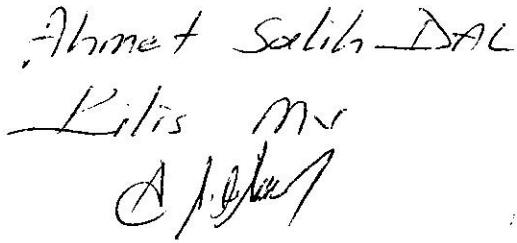 Ahmet Salih DAL
Kilis Mv